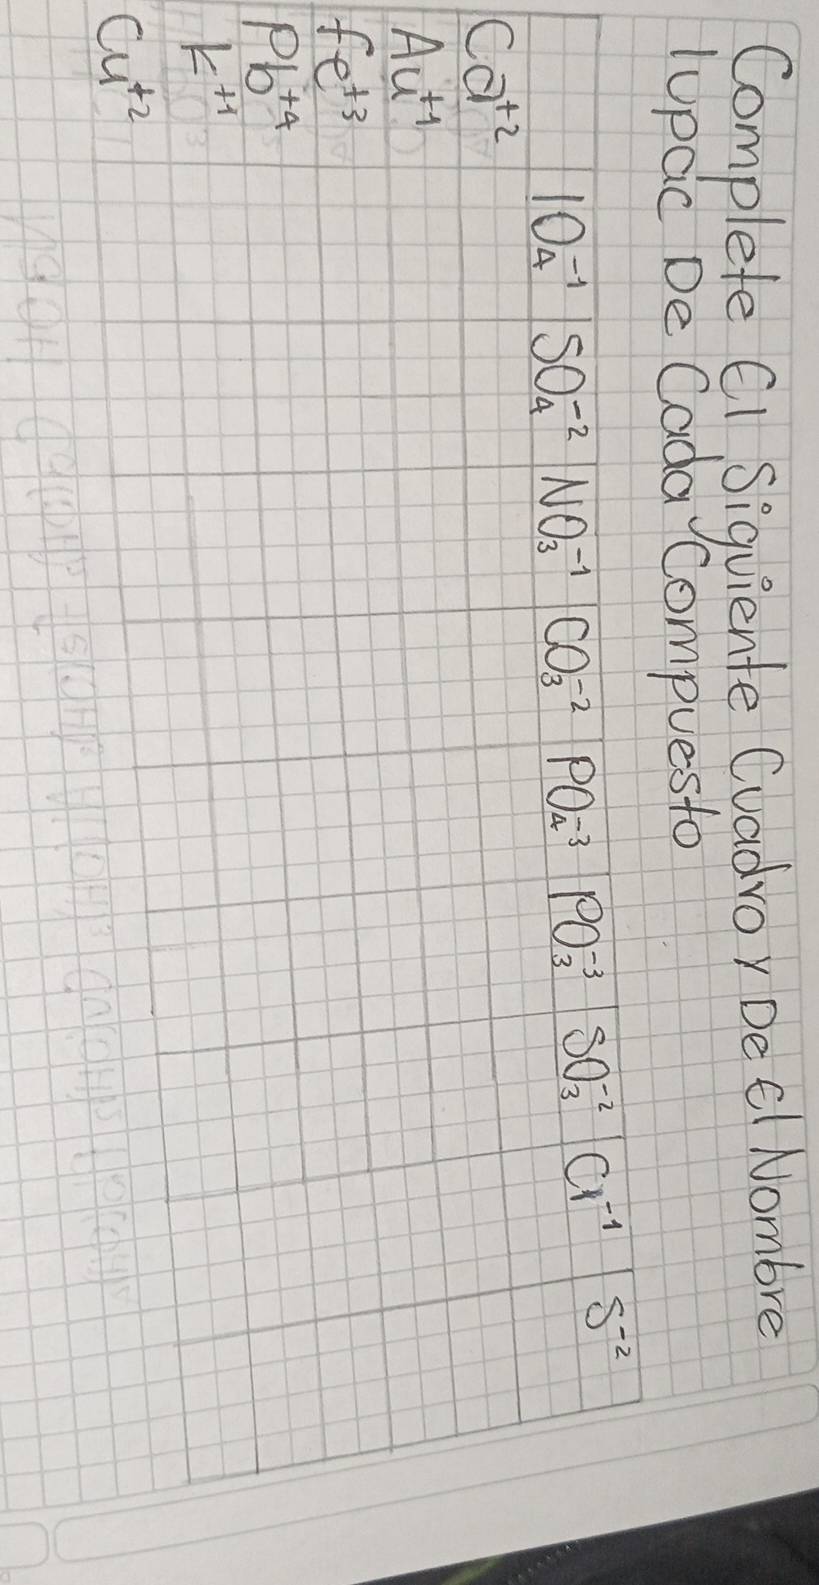 Complete El Siguiente Cuadro Y De El Nombre
Iupac De Cada Compuesto
IO₄⁻¹ SO₄⁻² NO₃⁻¹ CO₃⁻² PO₄⁻³ PO₃⁻³ SO₃⁻² Cl⁻¹ S⁻²
Ca⁺²
Au⁺¹
fe⁺³
Pb⁺⁴
k⁺¹
Cu⁺²